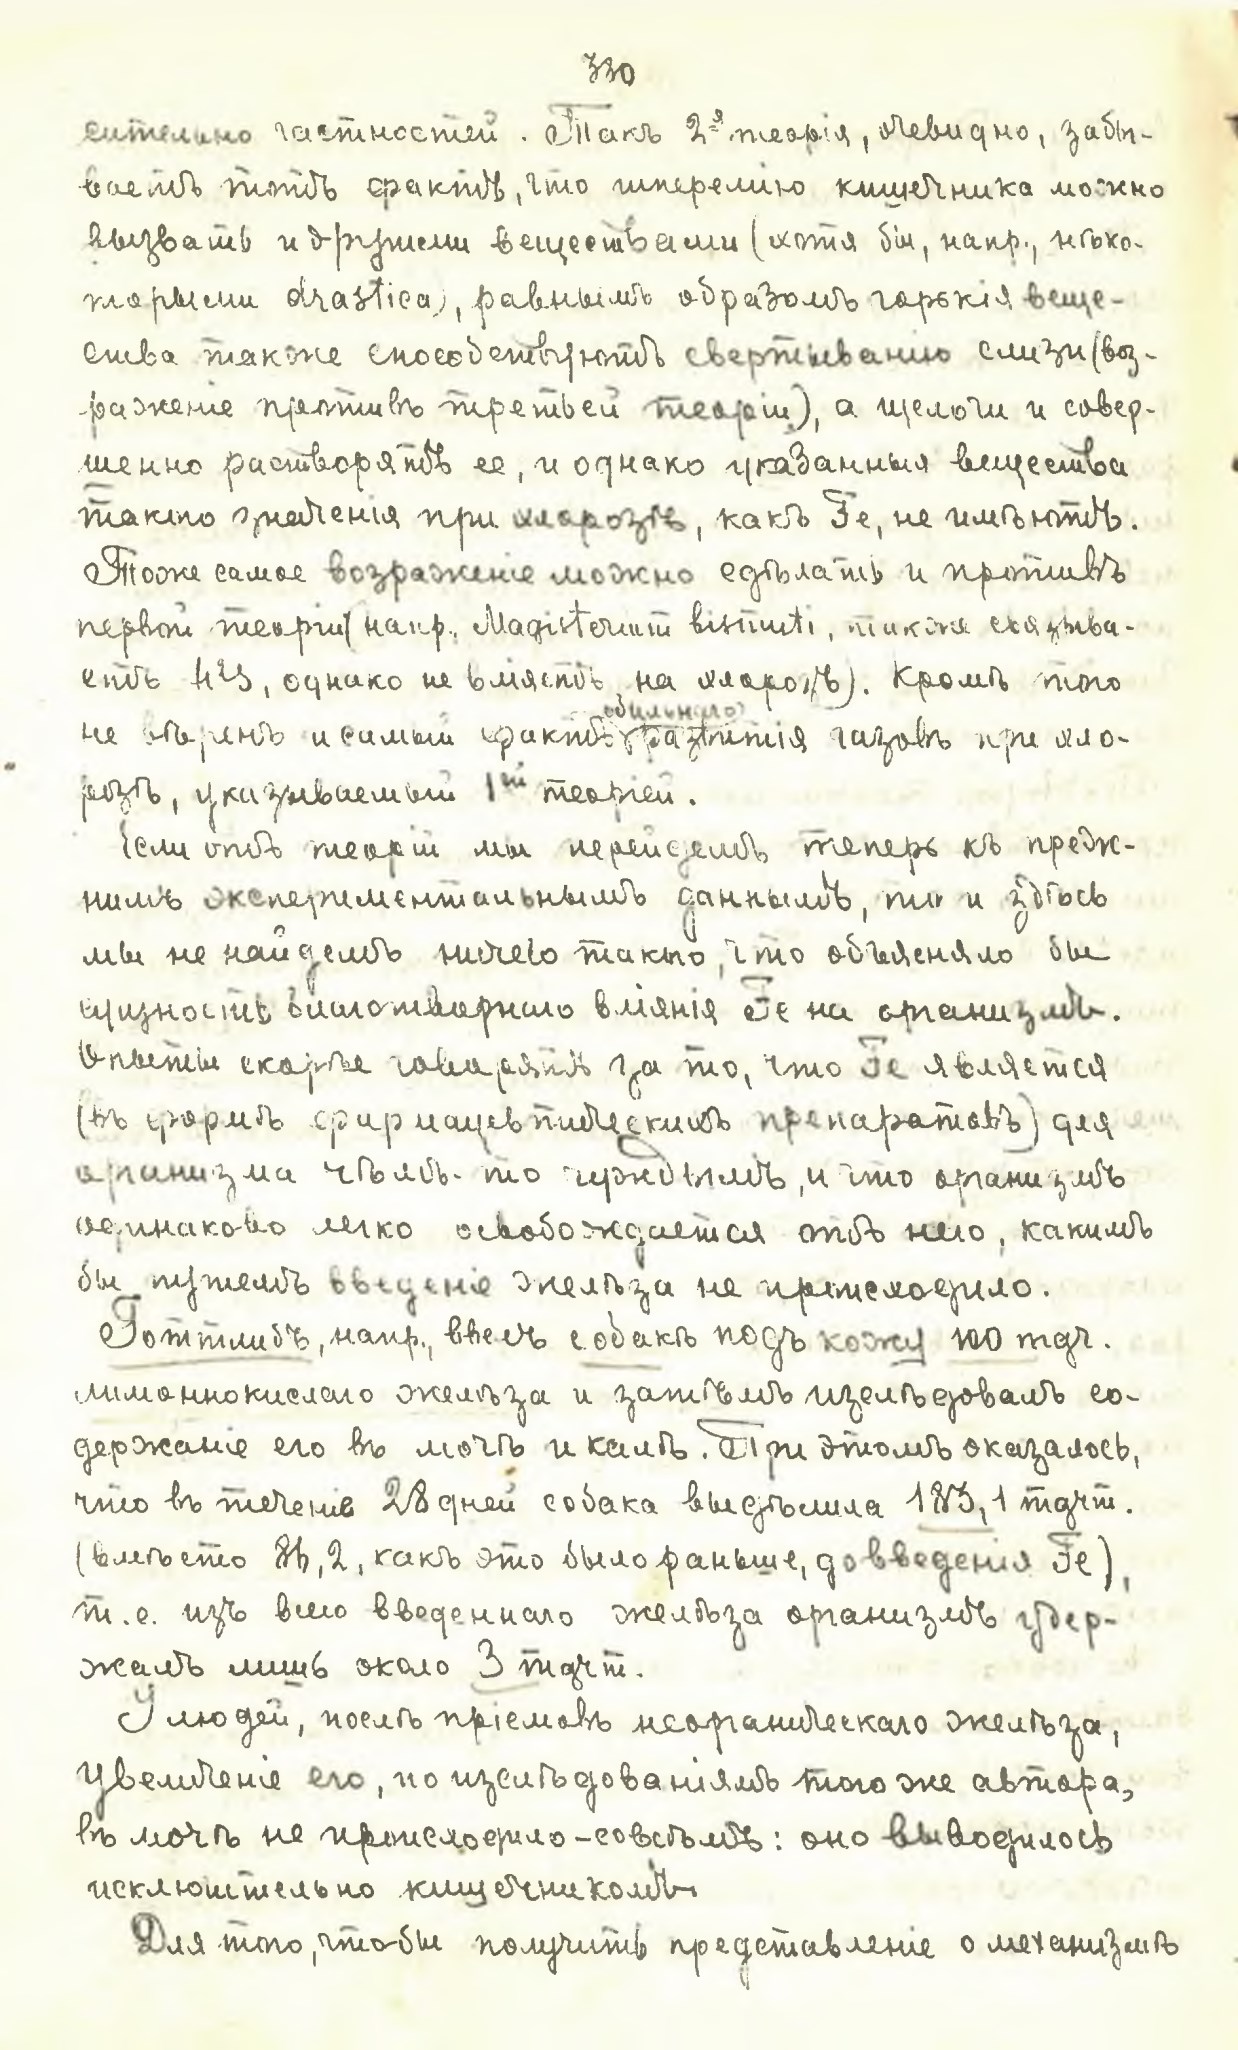 330
сительно частностей. Такъ 2-я теорія, очевидно, забы-
ваетъ тотъ фактъ, что гиперемію кишечника можно
вызвать и другими веществами (хотя бы, напр., нѣко-
торыми drastica), равнымъ образомъ горькія веще-
ства также способствуютъ свертыванию слизи (воз-
раженіе противъ третьей теоріи), а щелочи и совер-
шенно растворятъ ее, и однако указанныя вещества
такого значенія при хлорозѣ, какъ Fe, не имѣютъ.
Тоже самое возраженіе можно сдѣлать и противъ
первой теоріи (напр., Magisterium bismuti, также связыва-
етъ H2S, однако не вліяетъ на хлорозъ). Кромѣ того
не вѣренъ и самый фактъ обильнаго развитія газовъ при хло-
розѣ, указываемый 1ой теоріей.
Если отъ теорій мы перейдемъ теперь къ преж-
нимъ экспериментальнымъ даннымъ, то и здѣсь
мы не найдемъ ничего такого, что объясняло бы
сущность благотворнаго вліянія Fe на организмъ.
Опыты скорѣе говорятъ за то, что Fe является
(въ формѣ фармацевтическихъ препаратовъ) для
организма чѣмъ-то чуждымъ, и что организмъ
одинаково легко освобождается отъ него, какимъ
бы путемъ введеніе желѣза не происходило.
Готтлибъ, напр., ввелъ собакѣ подъ кожу 100 mgr.
лимоннокислаго желѣза и затѣмъ изслѣдовалъ со-
держаніе его въ мочѣ и калѣ. При этомъ оказалось,
что въ теченіе 28 дней собака выдѣлила 183,1 mgrm.
(вмѣсто 86,2, какъ это было раньше, до введенія Fe),
т.е. изъ всего введеннаго желѣза организмъ удер-
жалъ лишь около 3 mgrm.
У людей, послѣ пріемовъ неорганическаго желѣза,
увеличеніе его, по изслѣдованіямъ того же автора,
въ мочѣ не происходило-совсѣмъ: оно выводилось
исключительно кишечникомъ.
Для того, чтобы получить представленіе о механизмѣ